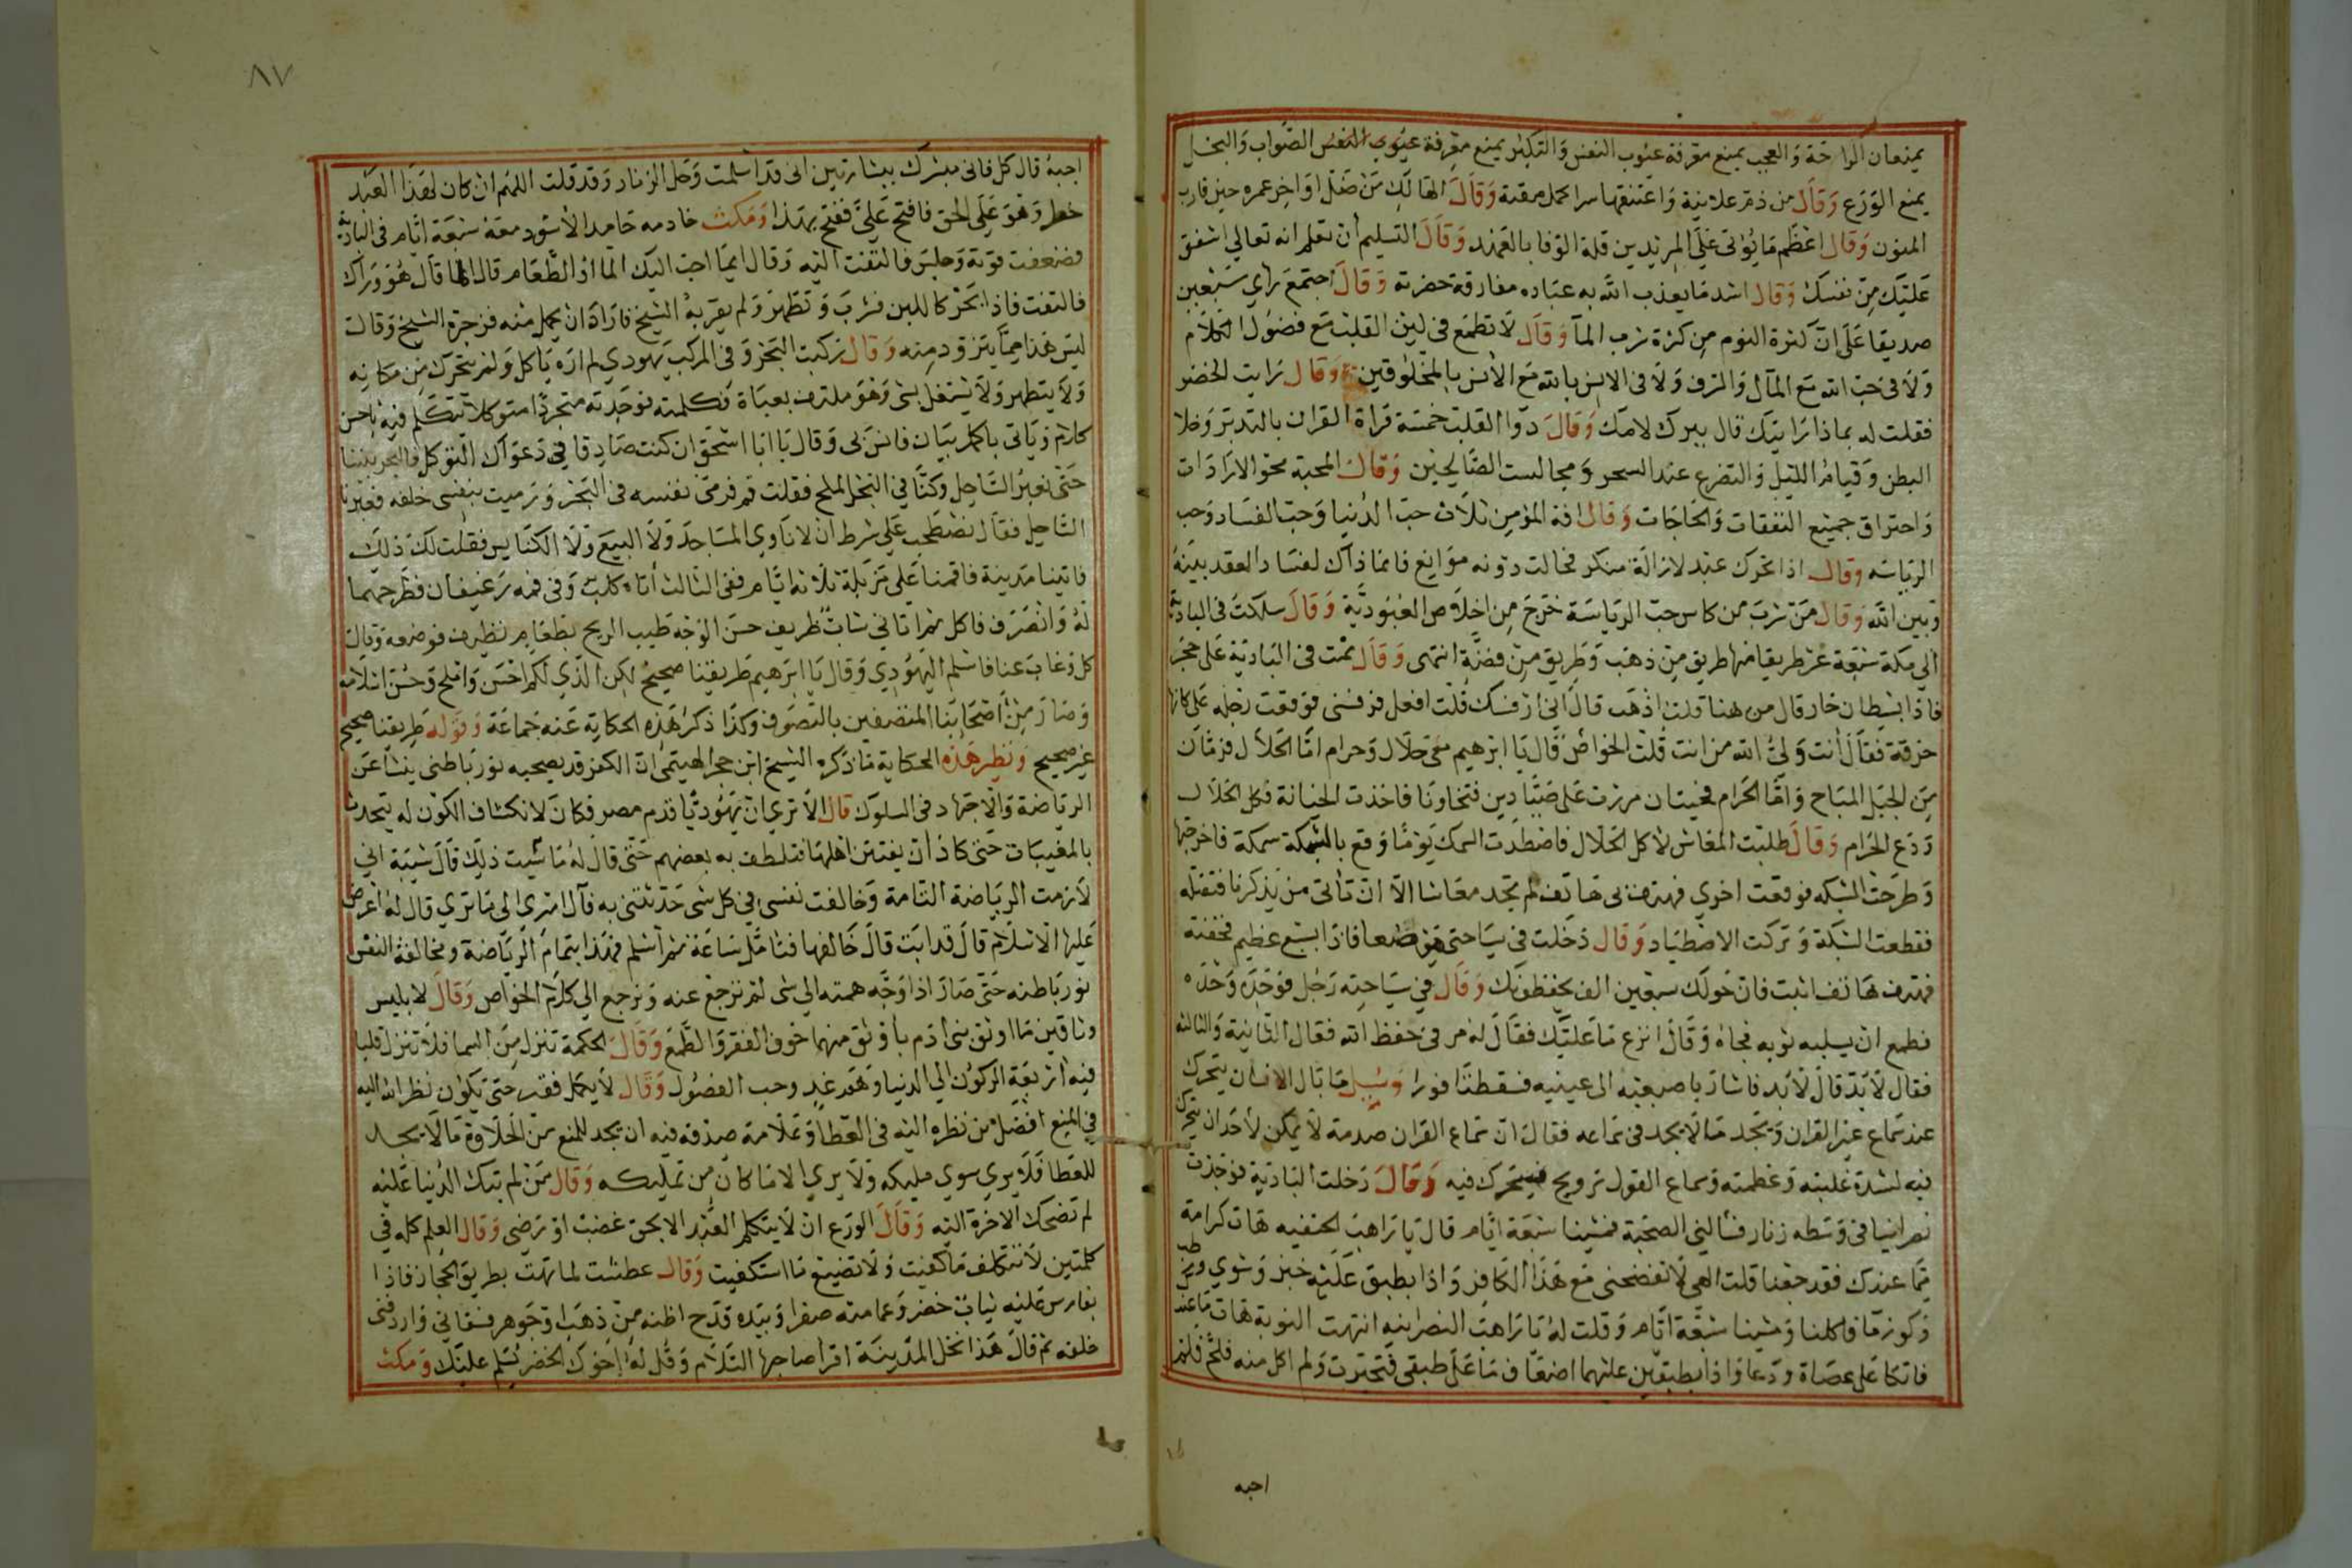 يمنعان الراحة والعجب يمنع معرفة عيوب النفس والتكبر يمنع معرفة الصواب والبخل
يمنع الورع وقال من ذم علانية واعتنقها سرا وقال الهالك من ضل اواخر عمره حين قارب
المنون وقال اعظم ما يؤتى على المريدين قلة الوفا بالعهد وقال التسليم ان تعلم انه تعالى اشفق
عليك من نفسك وقال اشد ما يعذب الله به عباده مفارقة حضرته وقال اجتمع راي سبعين
صديقا على ان كثرة النوم من كثرة شرب الما وقال لا تطمع في لين القلب مع فضول الكلام
ولا في حب الله مع المال والشرف ولا في الانس بالله مع الانس بالمخلوقين وقال رايت الخضر
فقلت له بماذا رايتك قال ببرك لامك وقال دوا القلب خمسة قراة القران بالتدبر وخلا
البطن وقيام الليل والتضرع عند السحر ومجالست الصالحين وقال المحبة محو الارادات
واحتراق جميع النفقات والحاجات وقال افة المؤمن ثلاث حب الدنيا وحب الفساد وحب
الرياسه وقال اذا تحرك عبد لازالة منكر فحالت دونه موانع فانما ذاك لفساد العقد بينه
وبين الله وقال من شرب من كاس حب الرياسة خرج من اخلاص العبودية وقال سلكت في البادية
الى مكة سبعة عشر طريقا منها طريق من ذهب وطريق من فضة انتهى وقال نمت في البادية على حجر
فاذا بشيطان خار قال من هنا قلت اذهب قال اني ارفسك قلت افعل فرفسني فوقعت رجله على كانها
خرقة فقال انت ولي الله من انت قلت الخواص قال يا ابرهيم معي حلال وحرام اما الحلال فرمان
من الجبل المباح واما الحرام فحيتان مررت على صيادين فتخاونا فاخذت الخيانة فكل الحلال
ودع الحرام وقال طلبت المعاش لاكل الحلال فاصطدت السمك يوما وقع بالشبكة سمكة فاخرجتها
وطرحت الشبكه فوقعت اخرى فهتف بي هاتف لم تجد معاشا الا ان تاتي من يذكرنا فتقتله
فقطعت الشبكة وتركت الاصطياد وقال دخلت في سياحتي موضعا فاذا بسبع عظيم فخفته
فهتف هاتف اثبت فان حولك سبعين الف يحفظونك وقال في سياحته رجل فوجده وحده
فطمع ان يسلبه ثوبه فجاه وقال انزع ما عليك فقال له مر في حفظ الله فقال الثانية والثالثة
فقال لا بد قال لا بد فاشار باصبعيه الى عينيه فسقطتا فورا وسيل ما بال الانسان يتحرك
عند سماع غير القران ويجد ما لا يجد في سماعه فقال ان سماع القران صدمة لا يمكن لاحد ان يتحرك
فيه لشدة غلبته وعظمته وسماع القول ترويح فيتحرك فيه وقال دخلت البادية فوجدت
نصرانيا في وسطه زنار فسالني الصحبة فمشينا سبعة ايام قال يا راهب الحنفيه هات كرامة
مما عندك فقد جعنا قلت الهي لا تفضحني مع هذا الكافر واذا بطبق عليه خبز وشوي ورطب
وكوز ما فاكلنا ومشينا سبعة ايام وقلت له يا راهب النصرانيه انتهت النوبة هات ما عندك
فاتكا على عصاة ودعا واذا بطبقين عليهما اضعاف ما على طبقي فتحيرت ولم اكل منه فلح فلم
احبه
٨٧
اجبه قال كل فاني مبشرك ببشارتين اني قد اسلمت وحل الزنار وقد قلت اللهم ان كان لهذا العبد
خطر وهو على الحق فافتح علي ففتح بهذا ومكث خادمه حامد الاسود معه سبعة ايام في البادية
فضعفت قوته وجلس فالتفت اليه وقال ايما احب اليك الما او الطعام قال الما قال هو وراك
فالتفت فاذا بحر كاللبن فشرب وتطهر ولم يقربه الشيخ فاراد ان يحمل منه فزجره الشيخ وقال
ليس هذا مما يتزود منه وقال ركبت البحر وفي المركب يهودي لم اره ياكل ولم يتحرك من مكانه
ولا يتطهر ولا يشتغل بشي وهو ملتف بعباة فكلمته فوجدته متجردا متوكلا يتكلم فيه باحسن
كلام وياتي باكمل بيان فانس بي وقال يا ابا اسحق ان كنت صادقا في دعواك التوكل فالبحر بيننا
حتى نعبر الساحل وكنا في البحر الملح فقلت قم فرمى نفسه في البحر ورميت بنفسي خلفه فعبرنا
الساحل فقال نصطحب على شرط ان لا ناوي المساجد ولا البيع ولا الكنايس فقلت لك ذلك
فاتينا مدينة فاقمنا على مزبلة ثلاثه ايام ففي الثالث اتاه كلب وفي فمه رغيفان فطرحهما
له وانصرف فاكل ثم اتاني شاب ظريف حسن الوجه طيب الريح بطعام نظيف فوضعه وقال
كل وغاب عنا فاسلم اليهودي وقال يا ابرهيم طريقنا صحيح لكن الذي لكم احسن واملح وحسن اسلامه
وصار من اصحابنا المتصفين بالتصوف وكذا ذكر هذه الحكاية عنه جماعة وقوله طريقنا صحيح
غير صحيح ونظير هذه الحكاية ما ذكره الشيخ ابن حجر الهيتمي ان الكفر قد يصحبه نور باطني ينشا عن
الرياضة والاجتهاد في السلوك قال الا ترى ان يهوديا قدم مصر فكان لانكشاف الكون له يتحدث
بالمغيبات حتى كاد ان يفتتن اهلها فتلطف به بعضهم حتى قال له ما سبب ذلك قال سببه اني
لازمت الرياضة التامة وخالفت نفسي في كل شي حدثتني به قال انتهى الى ما ترى قال له اعرض
عليها الاسلام قال قد ابت قال خالفها فتامل ساعة ثم اسلم فهذا بتمام الرياضة ومخالفة النفس
نور باطنه حتى صار اذا وجه همته الى شي لم ترجع عنه ونرجع الى كلام الخواص وقال لابليس
وثاقين ما اوثق بني ادم باوثق منهما خوف الفقر والطمع وقال الحكمة تنزل من السما فلا تنزل قلبا
فيه اربعة الركون الى الدنيا وهم غد وحب الفضول وقال لا يكمل فقير حتى يكون نظر الله اليه
في المنع افضل من نظره اليه في العطا وعلامة صدقه فيه ان يجد للمنع من الحلاوة ما لا يجد
للعطا فلا يرى سوى مليكه ولا يرى الا ما كان من تمليكه وقال من لم تبك الدنيا عليه
لم تضحك الاخرة اليه وقال الورع ان لا يتكلم العبد الا بحق غضب او رضي وقال العلم كله في
كلمتين لا تتكلف ما كفيت ولا تضيع ما استكفيت وقال عطشت لما تهت بطريق الحجاز فاذا
بفارس عليه ثياب خضر وعمامته صفرا وبيده قدح اظنه من ذهب او جوهر فسقاني واردفني
خلفه ثم قال هذا نخل المدينة اقرا صاحبها السلام وقل له اخوك الخضر يسلم عليك ومكث